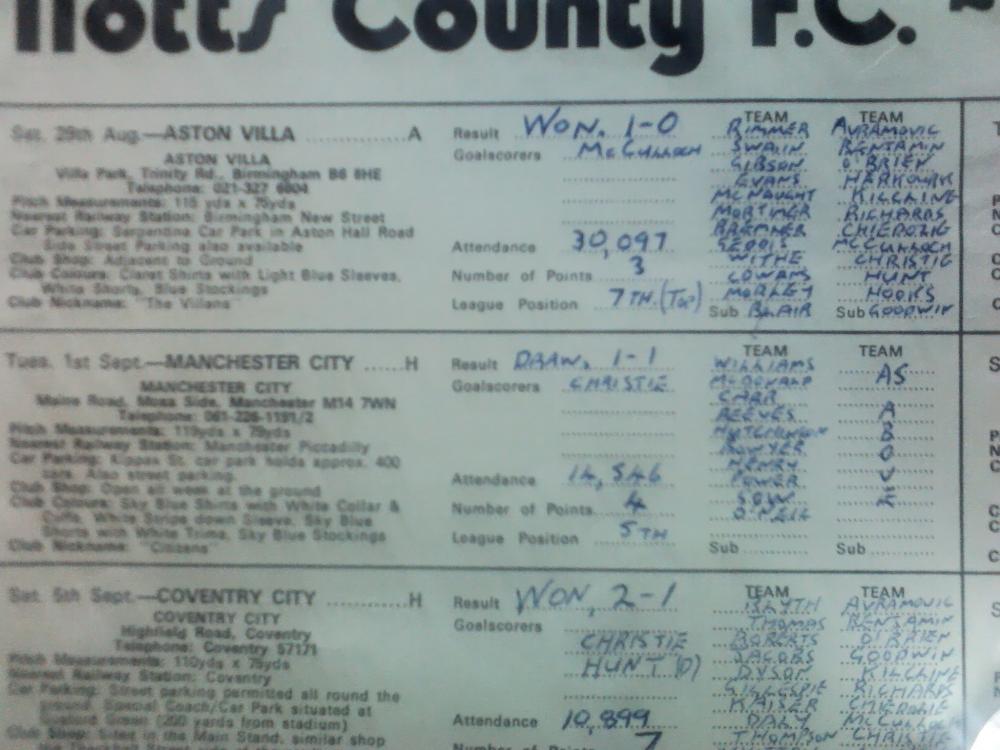 Notts County F.C.
Sat. 29th Aug.—ASTON VILLA ............... A
ASTON VILLA
Villa Park, Trinity Rd., Birmingham B6 6HE
Telephone: 021-327 6604
Pitch Measurements: 115 yds x 75yds
Nearest Railway Station: Birmingham New Street
Car Parking: Serpentine Car Park in Aston Hall Road
Side Street Parking also available
Club Shop: Adjacent to Ground
Club Colours: Claret Shirts with Light Blue Sleeves,
White Shorts, Blue Stockings
Club Nickname: "The Villans"
Result WON. 1-0
Goalscorers McCULLOCH
Attendance 30,097
Number of Points 3
League Position 7TH. (Top)
TEAM
RIMMER
SWAIN
GIBSON
EVANS
McNAUGHT
MORTIMER
BREMNER
GEDDIS
WITHE
COWANS
MORLEY
Sub BLAIR
TEAM
AVRAMOVIC
BENJAMIN
O'BRIEN
HARKOUK
KILCLINE
RICHARDS
CHIEDOZIE
McCULLOCH
CHRISTIE
HUNT
HOOKS
Sub GOODWIN
Tues. 1st Sept.—MANCHESTER CITY ...... H
MANCHESTER CITY
Maine Road, Moss Side, Manchester M14 7WN
Telephone: 061-226-1191/2
Pitch Measurements: 119yds x 79yds
Nearest Railway Station: Manchester Piccadilly
Car Parking: Kippax St. car park holds approx. 400
cars. Also street parking.
Club Shop: Open all week at the ground
Club Colours: Sky Blue Shirts with White Collar &
Cuffs, White Stripe down Sleeve, Sky Blue
Shorts with White Trims, Sky Blue Stockings
Club Nickname: "Citizens"
Result DRAW. 1-1
Goalscorers CHRISTIE
Attendance 14,546
Number of Points 4
League Position 5TH
TEAM
WILLIAMS
McDONALD
CARR
REEVES
HUTCHINSON
BOWYER
HENRY
POWER
SOW
O'NEIL
Sub
TEAM
AS
A
B
O
V
E
Sub
Sat. 5th Sept.—COVENTRY CITY ............ H
COVENTRY CITY
Highfield Road, Coventry
Telephone: Coventry 57171
Pitch Measurements: 110yds x 75yds
Nearest Railway Station: Coventry
Car Parking: Street parking permitted all round the
ground. Special Coach/Car Park situated at
Gosford Green (200 yards from stadium)
Club Shop: Sited in the Main Stand, similar shop
Result WON, 2-1
Goalscorers
CHRISTIE
HUNT (P)
Attendance 10,899
Number of Points 7
TEAM
BLYTH
THOMAS
ROBERTS
JACOBS
DYSON
GILLESPIE
KAISER
DALY
THOMPSON
TEAM
AVRAMOVIC
BENJAMIN
O'BRIEN
GOODWIN
KILCLINE
RICHARDS
CHIEDOZIE
McCULLOCH
CHRISTIE